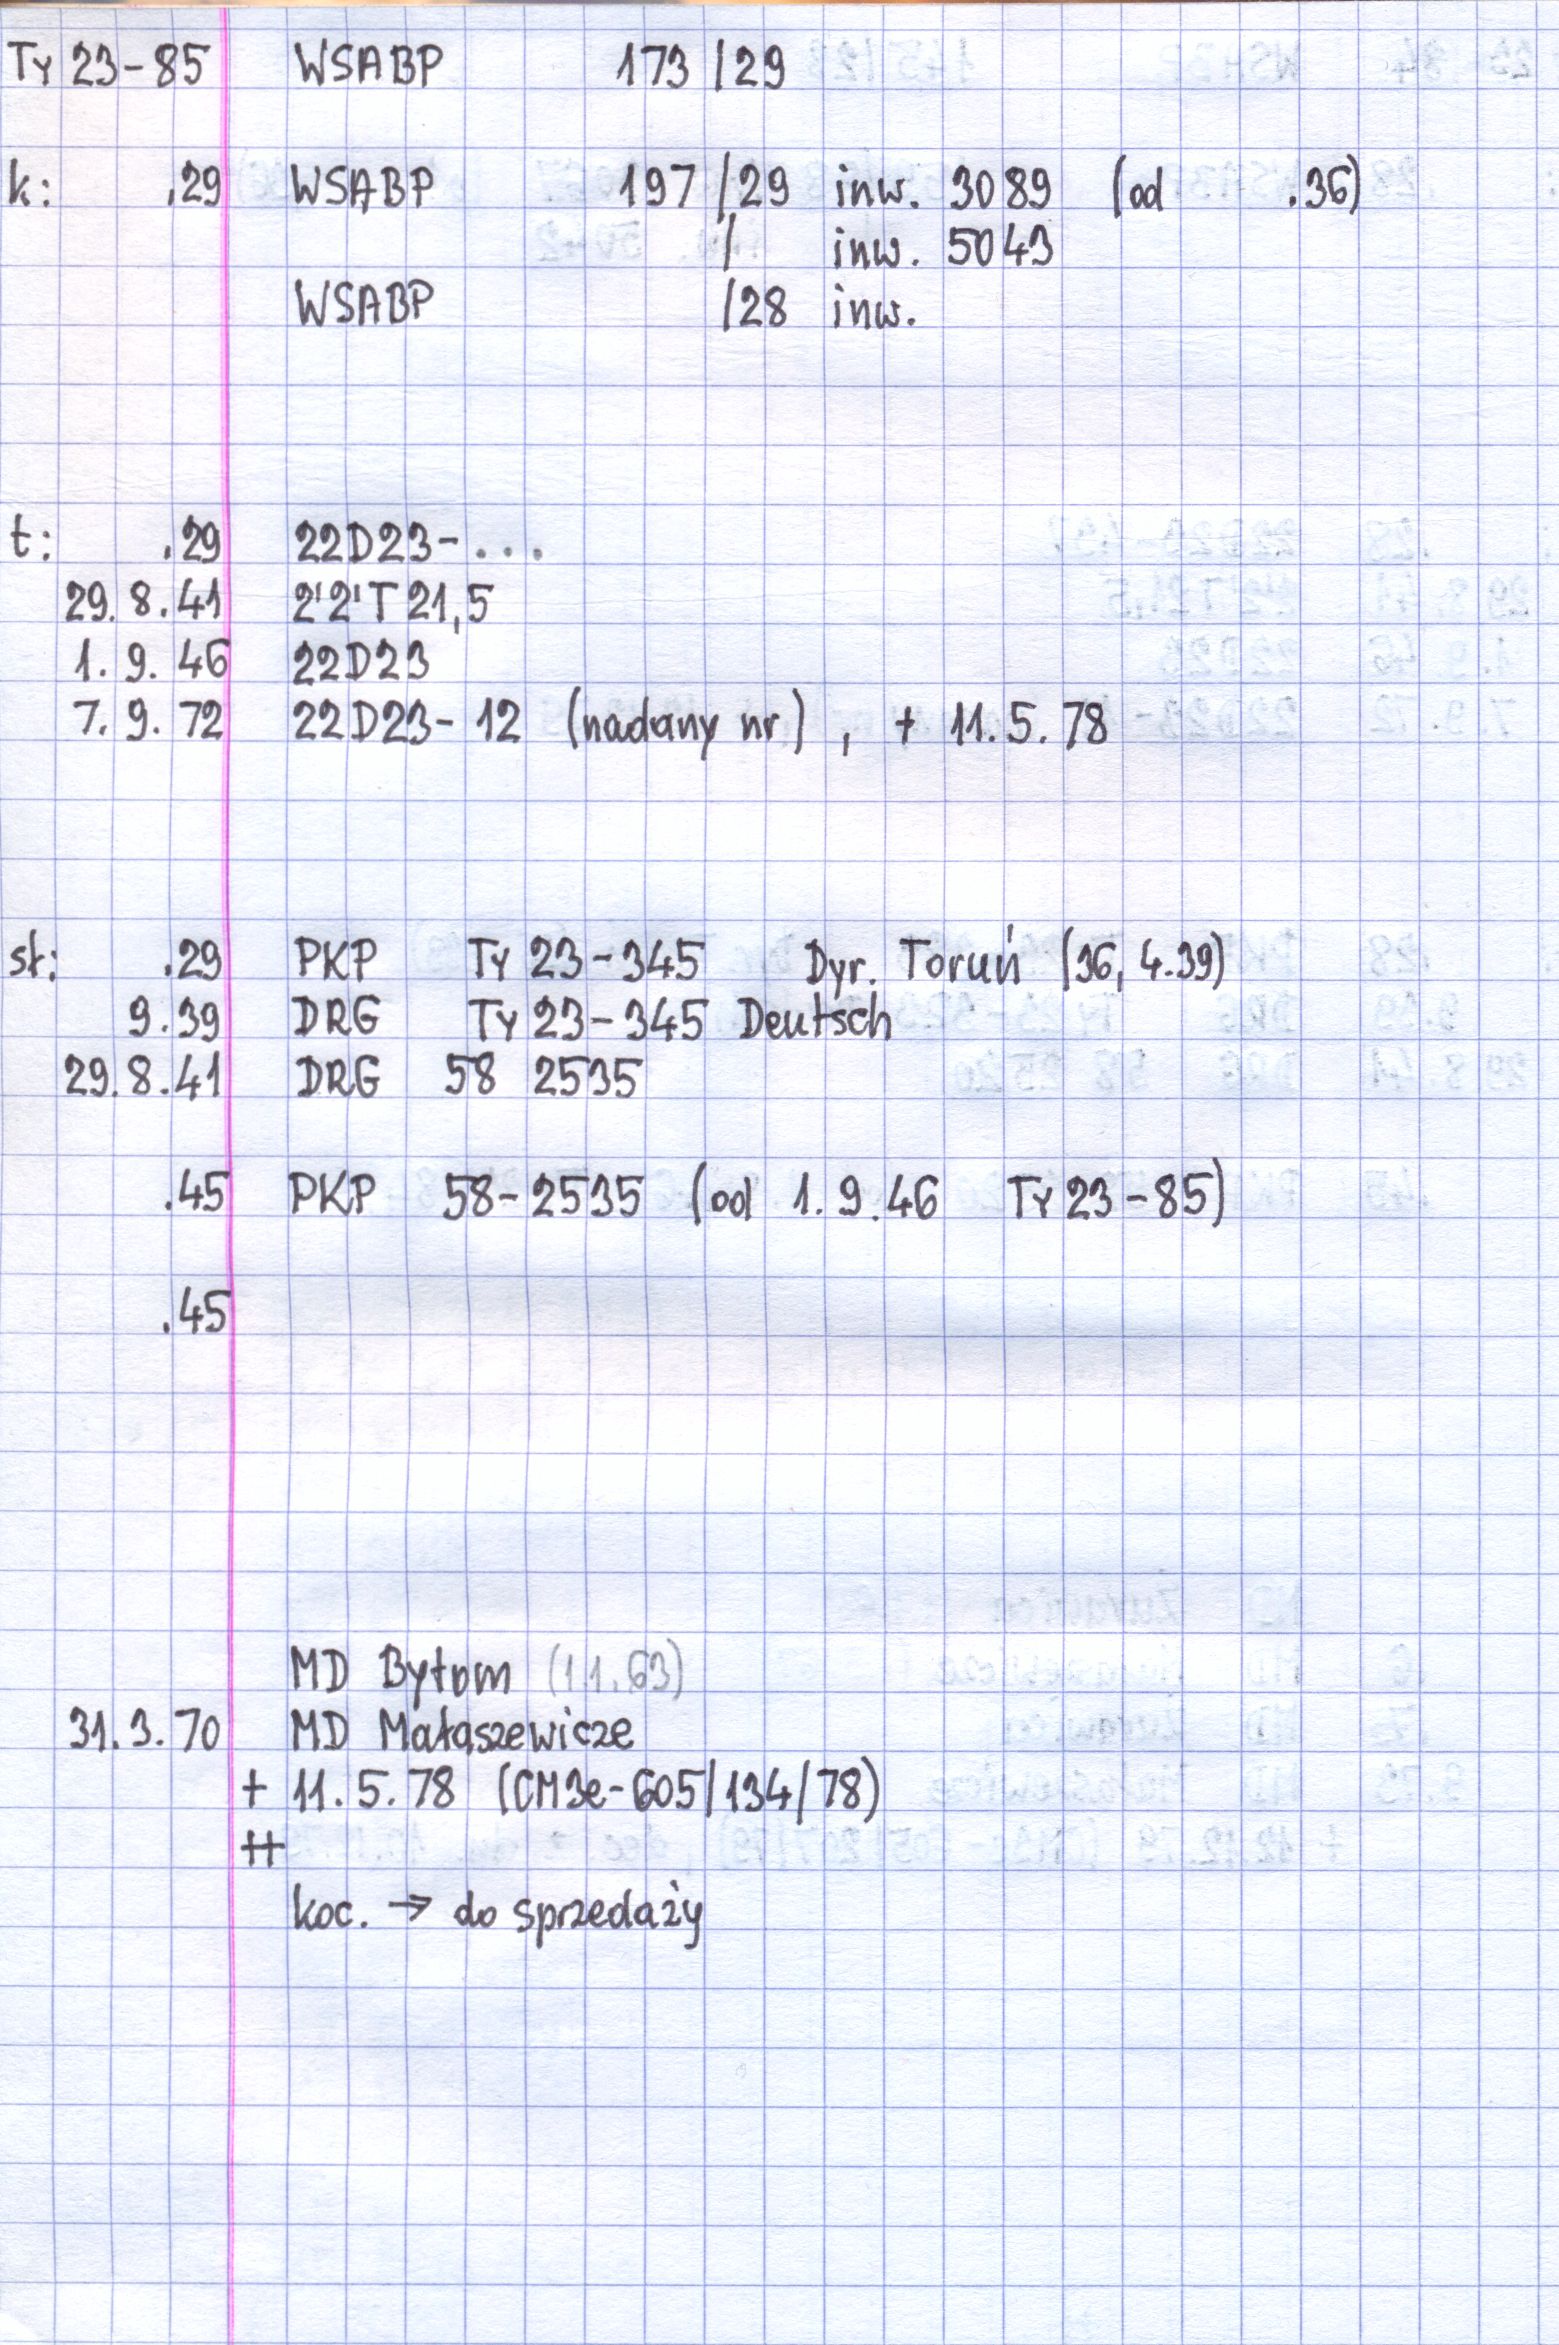 Ty 23-85 WSABP 173 /29
k: .29 WSABP 197 /29 inw. 3089 (od .36)
/ inw. 5043
WSABP /28 inw.
t: .29 22D23-...
29.8.41 2'2'T21,5
1.9.46 22D23
7.9.72 22D23-12 (nadany nr), + 11.5.78
sł: .29 PKP Ty 23-345 Dyr. Toruń (36, 4.39)
9.39 DRG Ty 23-345 Deutsch
29.8.41 DRG 58 2535
.45 PKP 58-2535 (od 1.9.46 Ty 23-85)
.45
MD Bytom (1.1.63)
31.3.70 MD Małaszewicze
+ 11.5.78 (CM3e-605/134/78)
++
koc. → do sprzedaży